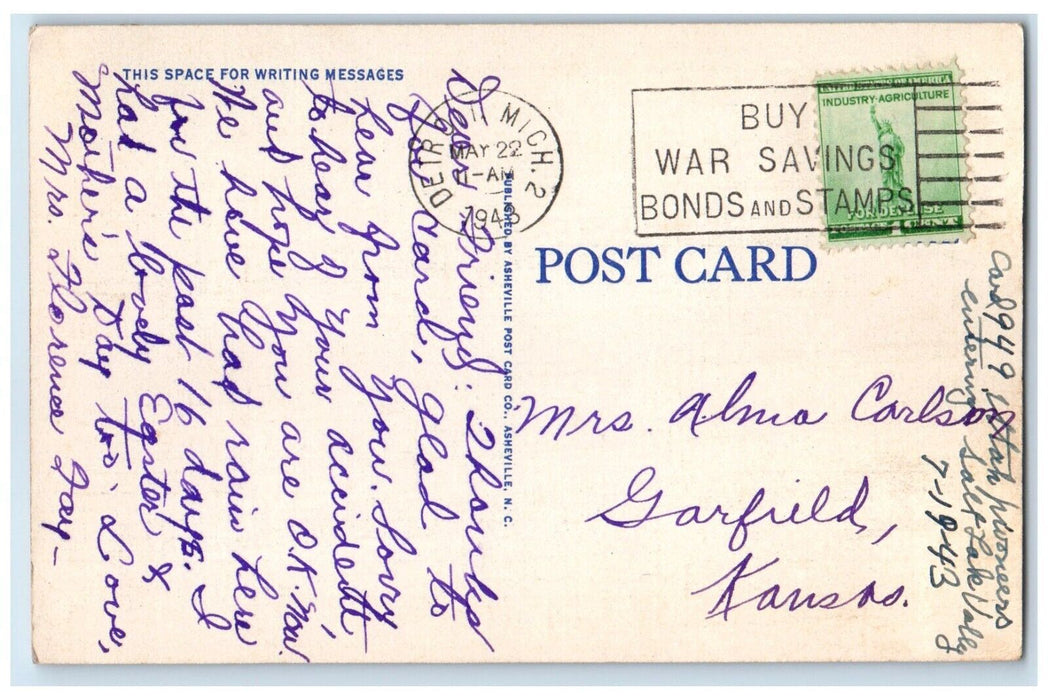 THIS SPACE FOR WRITING MESSAGES
Dear Friend: Thanks
for card, Glad to
hear from you. Sorry
to hear of your accident,
and hope you are O.K. now.
We have had rain here
for the past 16 days. I
had a lovely Easter &
Mother's Day too. Love,
Mrs. Florence Fay-
PUBLISHED BY ASHEVILLE POST CARD CO., ASHEVILLE, N. C.
DETROIT, MICH. 2
MAY 22
11-AM
1943
BUY
WAR SAVINGS
BONDS AND STAMPS
UNITED STATES OF AMERICA
INDUSTRY·AGRICULTURE
FOR DEFENSE
POST CARD
Mrs. Alma Carlson
Garfield,
Kansas.
Card 949 Utah pioneers
entering Salt Lake Vally
7-1943